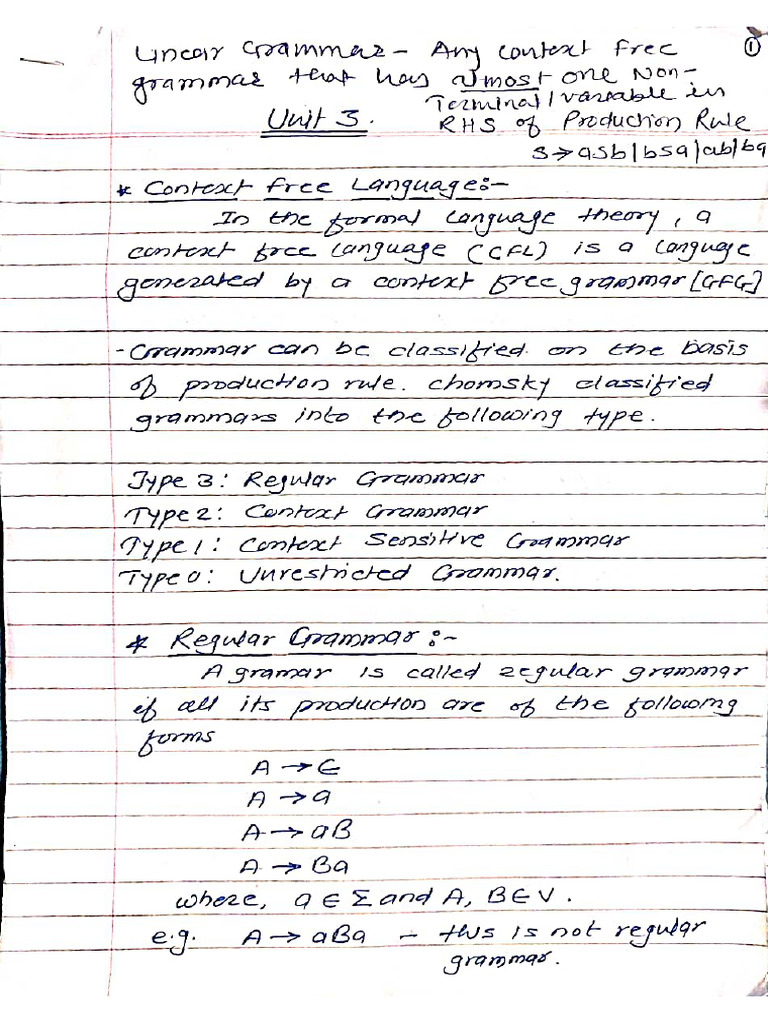 Linear Grammar - Any context free ①
grammar that has atmost one Non-
Terminal/variable in
Unit 3.
RHS of Production Rule
S→aSb|bSa|ab|ba
* Context free Language:-
In the formal language theory, a
context free language (CFL) is a language
generated by a context free grammar [CFG]
- Grammar can be classified on the basis
of production rule. chomsky classified
grammars into the following type.
Type 3: Regular Grammar
Type 2: Context Grammar
Type 1: Context Sensitive Grammar
Type 0: Unrestricted Grammar.
* Regular Grammar:-
A gramar is called regular grammar
if all its production are of the following
forms
A → ∈
A → a
A → aB
A → Ba
where, a ∈ Σ and A, B ∈ V.
e.g. A → aBa - this is not regular
grammar.